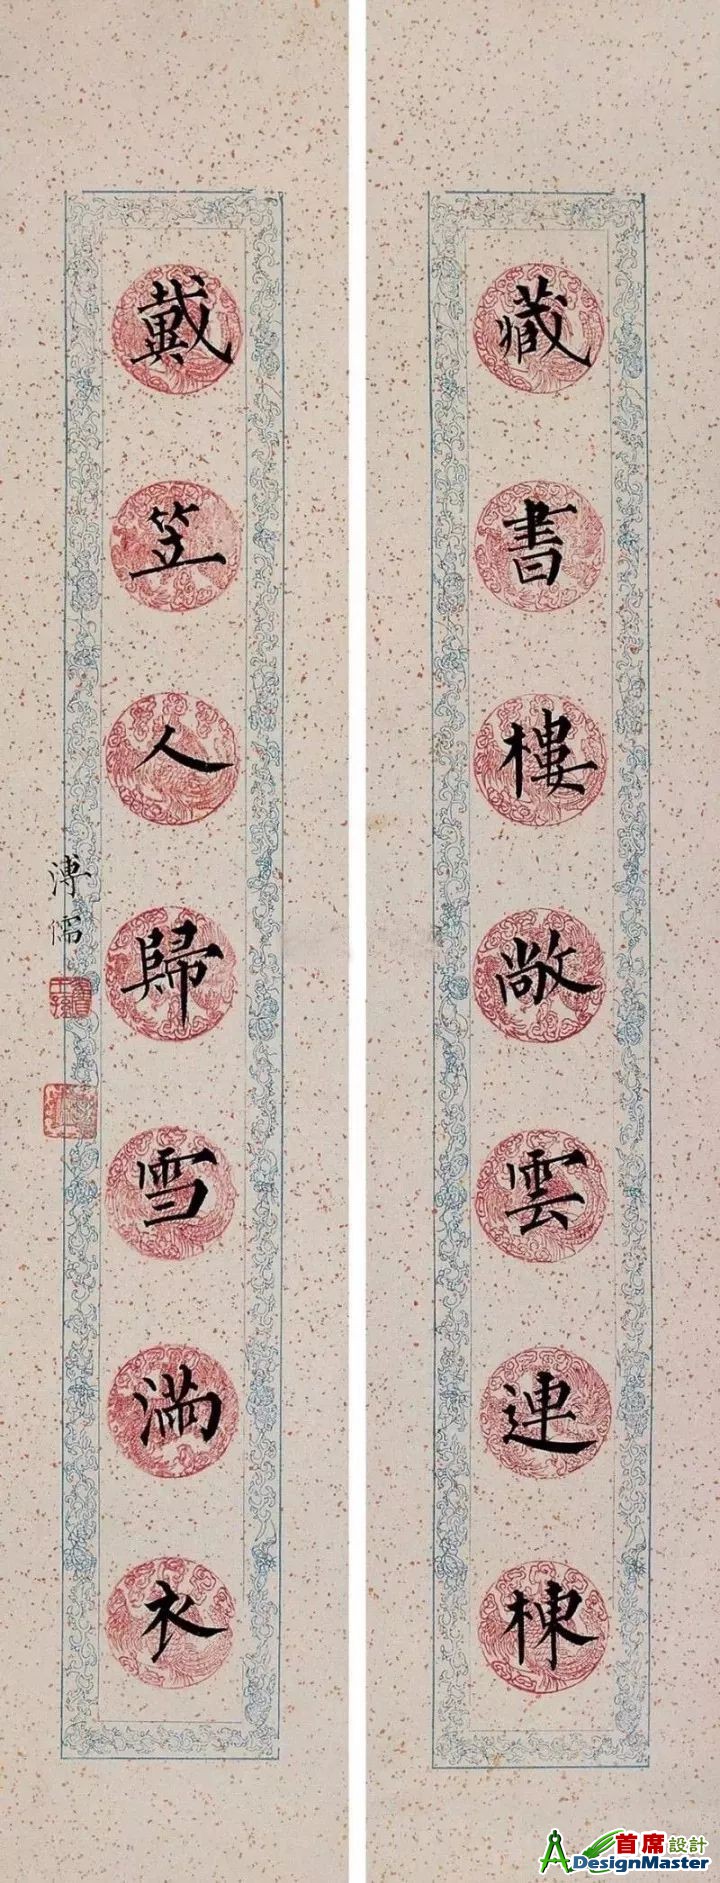 藏書樓敞雲連棟
戴笠人歸雪滿衣
溥儒
首席設計
DesignMaster